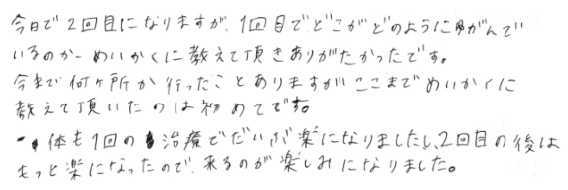 今日で2回目になりますが、1回目でどこがどのようにゆがんで
いるのかめいかくに教えて頂きありがたかったです。
今まで何ヶ所か行ったことありますがここまでめいかくに
教えて頂いたのは初めてです。
体も1回の治療でだいぶ楽になりましたし、2回目の後は
もっと楽になったので、来るのが楽しみになりました。